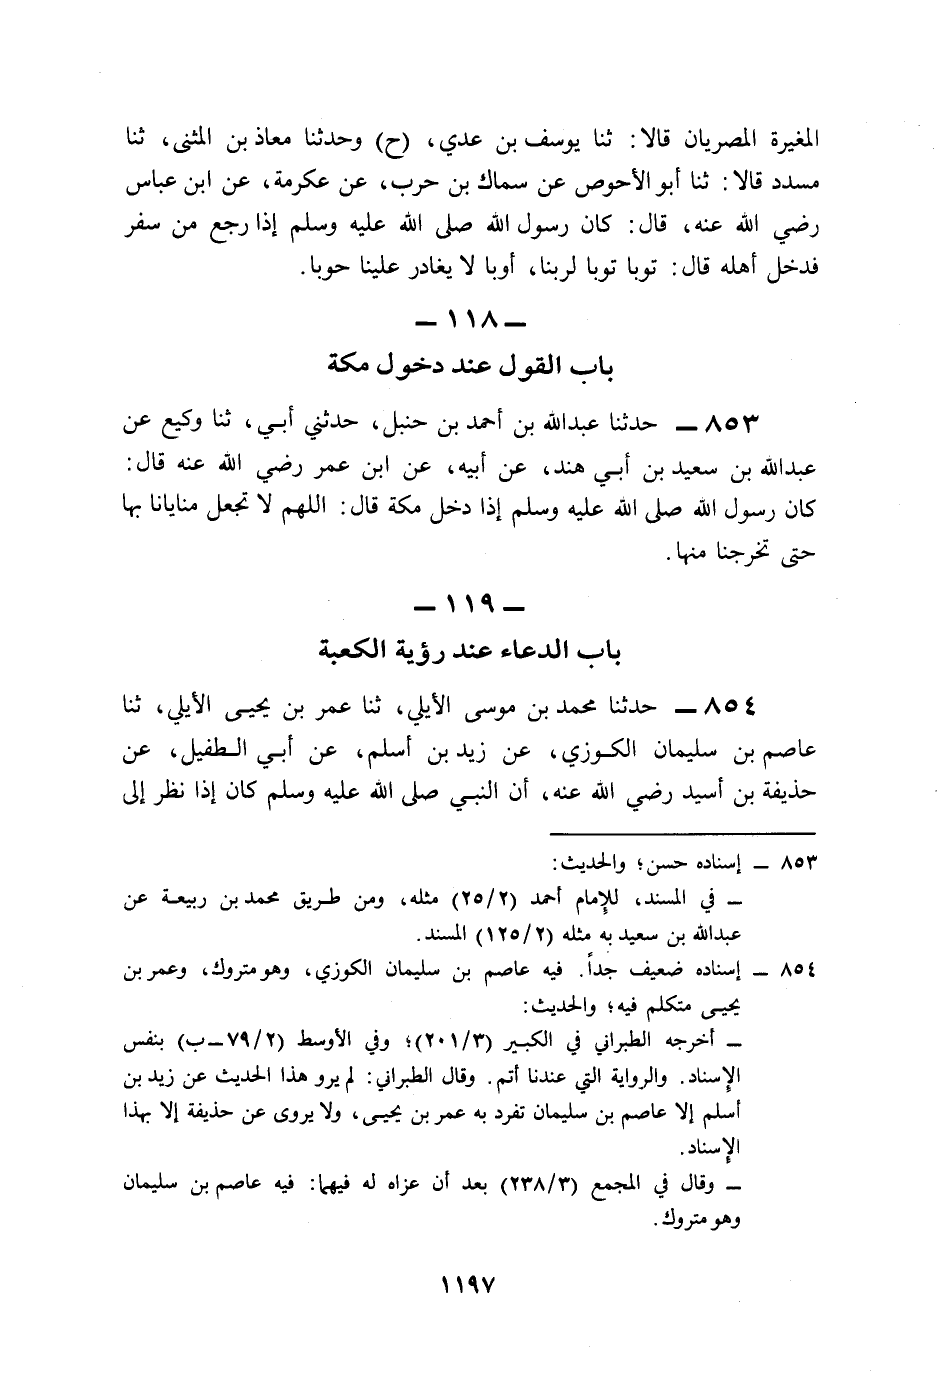 المغيرة المصريان قالا: ثنا يوسف بن عدي، (ح) وحدثنا معاذ بن المثنى، ثنا
مسدد قالا: ثنا أبو الأحوص عن سماك بن حرب، عن عكرمة، عن ابن عباس
رضي الله عنه، قال: كان رسول الله صلى الله عليه وسلم إذا رجع من سفر
فدخل أهله قال: توبا توبا لربنا، أوبا لا يغادر علينا حوبا.
ــ ١١٨ ــ
باب القول عند دخول مكة
٨٥٣ ــ حدثنا عبدالله بن أحمد بن حنبل، حدثني أبي، ثنا وكيع عن
عبدالله بن سعيد بن أبي هند، عن أبيه، عن ابن عمر رضي الله عنه قال:
كان رسول الله صلى الله عليه وسلم إذا دخل مكة قال: اللهم لا تجعل منايانا بها
حتى تخرجنا منها.
ــ ١١٩ ــ
باب الدعاء عند رؤية الكعبة
٨٥٤ ــ حدثنا محمد بن موسى الأيلي، ثنا عمر بن يحيى الأيلي، ثنا
عاصم بن سليمان الكوزي، عن زيد بن أسلم، عن أبي الطفيل، عن
حذيفة بن أسيد رضي الله عنه، أن النبي صلى الله عليه وسلم كان إذا نظر إلى
٨٥٣ ــ إسناده حسن؛ والحديث:
ــ في المسند، للإمام أحمد (٢٥/٢) مثله، ومن طريق محمد بن ربيعة عن
عبدالله بن سعيد به مثله (١٢٥/٢) المسند.
٨٥٤ ــ إسناده ضعيف جداً. فيه عاصم بن سليمان الكوزي، وهو متروك، وعمر بن
يحيى متكلم فيه؛ والحديث:
ــ أخرجه الطبراني في الكبير (٢٠١/٣)؛ وفي الأوسط (٧٩/٢ــب) بنفس
الإسناد. والرواية التي عندنا أتم. وقال الطبراني: لم يرو هذا الحديث عن زيد بن
أسلم إلا عاصم بن سليمان تفرد به عمر بن يحيى، ولا يروى عن حذيفة إلا بهذا
الإسناد.
ــ وقال في المجمع (٢٣٨/٣) بعد أن عزاه له فيهما: فيه عاصم بن سليمان
وهو متروك.
١١٩٧